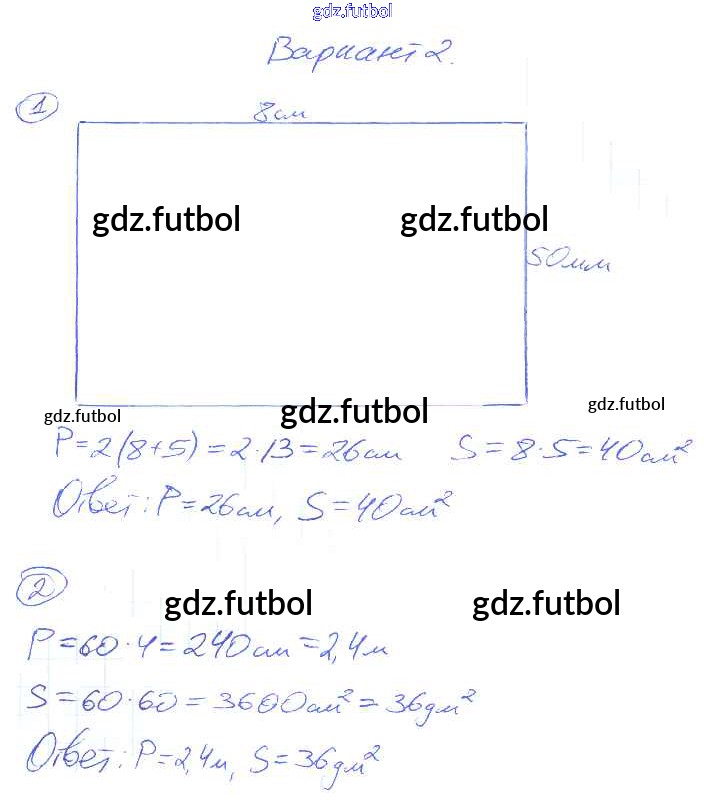 gdz.futbol
Вариант 2.
1
8см
gdz.futbol gdz.futbol
50мм
gdz.futbol gdz.futbol gdz.futbol
P=2(8+5)=2·13=26см S=8·5=40см²
Ответ: P=26см, S=40см²
2
gdz.futbol gdz.futbol
P=60·4=240см=2,4м
S=60·60=3600см²=36дм²
Ответ: P=2,4м, S=36дм²